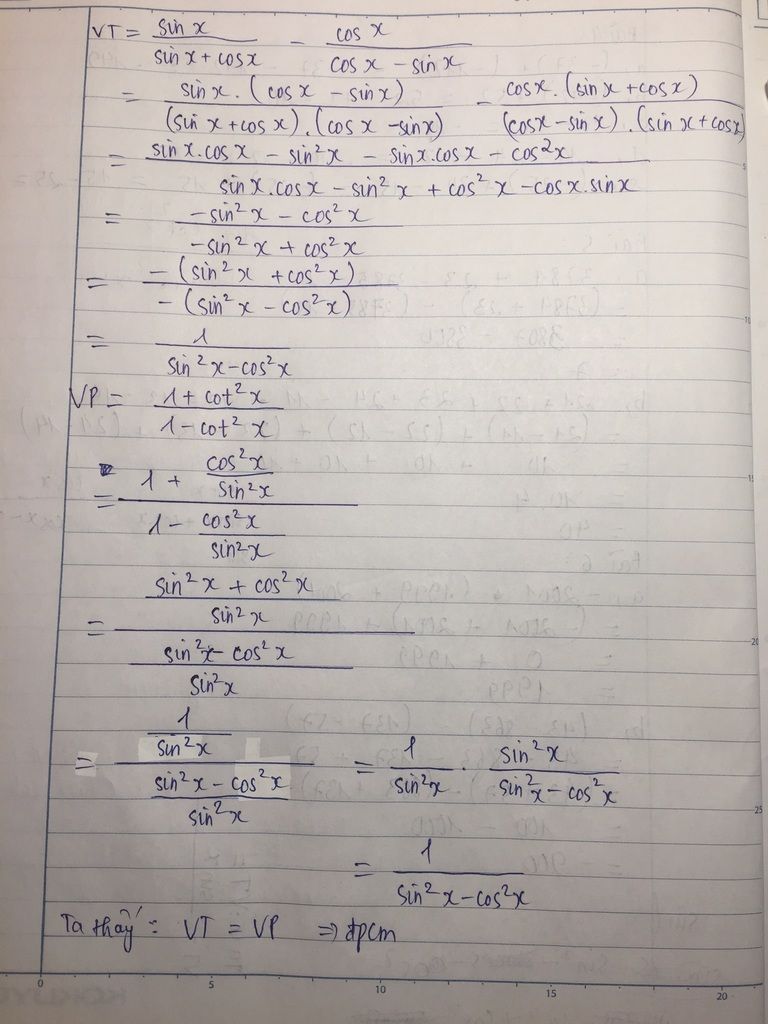 VT = sin x / (sin x + cos x) − cos x / (cos x − sin x)
= sin x . (cos x − sin x) / (sin x + cos x) . (cos x − sin x) − cos x . (sin x + cos x) / (cos x − sin x) . (sin x + cos x)
= (sin x . cos x − sin² x − sin x . cos x − cos² x) / (sin x . cos x − sin² x + cos² x − cos x . sin x)
= (− sin² x − cos² x) / (− sin² x + cos² x)
= − (sin² x + cos² x) / − (sin² x − cos² x)
= 1 / (sin² x − cos² x)
VP = (1 + cot² x) / (1 − cot² x)
= (1 + cos² x / sin² x) / (1 − cos² x / sin² x)
= ((sin² x + cos² x) / sin² x) / ((sin² x − cos² x) / sin² x)
= (1 / sin² x) / ((sin² x − cos² x) / sin² x) = 1 / sin² x . sin² x / (sin² x − cos² x)
= 1 / (sin² x − cos² x)
Ta thấy : VT = VP ⇒ đpcm
0 5 10 15 20